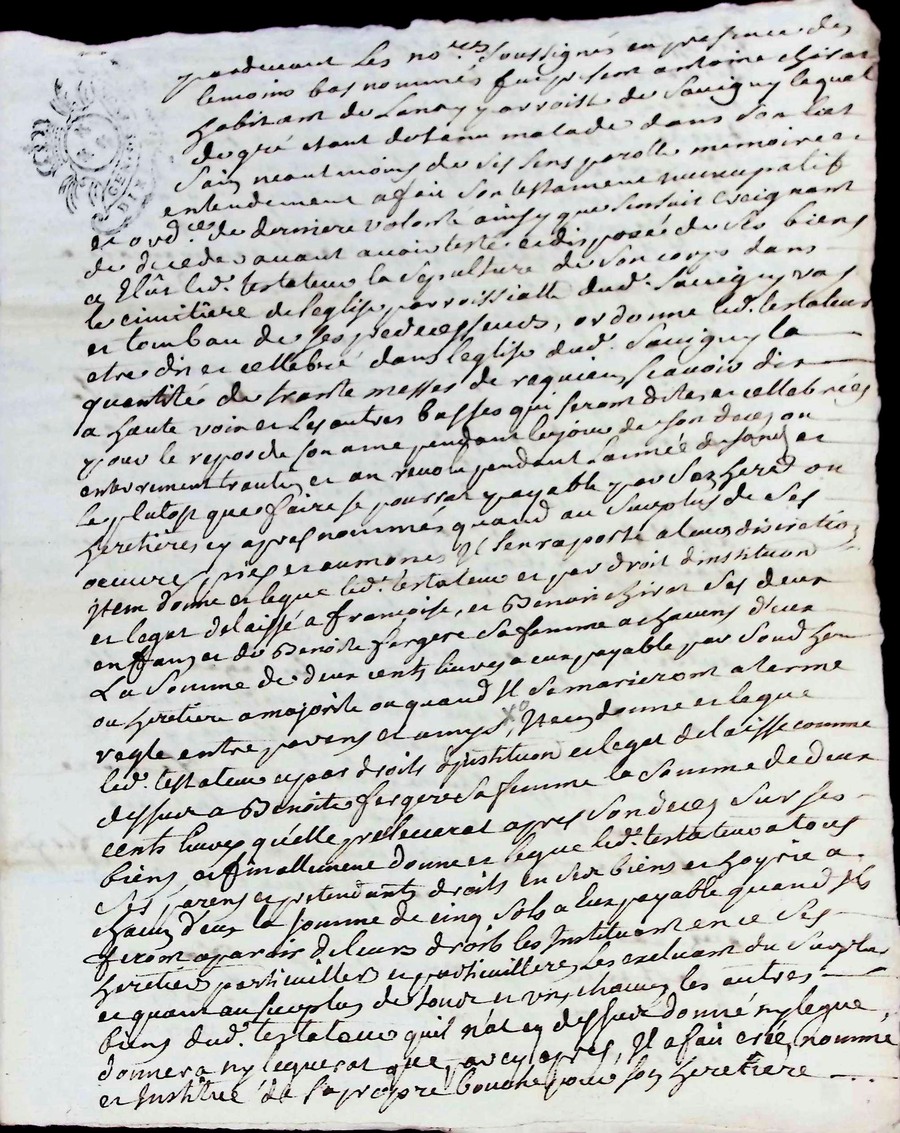 pardevant Les no.res soussignés en presence des
temoins bas nommés fut present antoine chirat
habitant de Lanay parroisse de Savigny lequel
de gré etant detenu malade dans son lict
sain neautmoins de ses sens parolle memoire et
entendement a fait son testament nuncupatif
et ord.ce de derniere volonté ainsy que sensuit Creignant
de deceder avant avoir testé et disposé de ses biens
a Elût led. testateur la sepulture de son corps dans
le cimitière de leglise parroissialle dud. Savigny vas
et tombau de ses predecesseurs, ordonne led. testateur
etre dit et cellebré dans leglise dud. Savigny la
quantité de trante messes de requiem scavoir dix
a haute voix et les autres basses qui seront dites et cellebrées
pour le repos de son ame pendant les jours de son deces ou
enterrement trantin et au revolu pendant lannée de son d. et
le plutost que faire se pourrat payable par ses hered ou
heretières cy apres nommés quand au surplus de ses
oeuvres pies et aumones Il sen raporte a leur discretion
Item donne et legue led. testateur et par droit dinstitution
et legat delaissé a francoise, et Benoit chirat ses deux
enffans et de Benoite fergere sa femme a chacuns d'eux
La somme de deux cents livres a eux payable par sond her
ou heretiere a majorité ou quand Il se marieront a terme
reglé entre parens et amys, Item donne et legue
led. testateur et par droits d'institution et legat delaissé comme
dessus a Benoite fergere sa femme la somme de deux
cents livres qu'elle prelevera apres son deces sur ses
biens, et finallement donne et legue led. testateur a tous
ses parens et pretendants droits en ses biens et hoyrie a
chacun d'eux la somme de cinq sols a eux payable quand Ils
feront aparoir de leurs droits les Instituant en ce ses
heretiers particuilliers et particuillieres les excluant du surplus
et quant au surplus de tous et uns chacuns les autres
biens dud. testateur quil n'at cy dessus donné ny legué,
donnera ny leguerat que par cy apres, Il a fait créé nommé
et Institué de sa propre bouche pour son heretiere